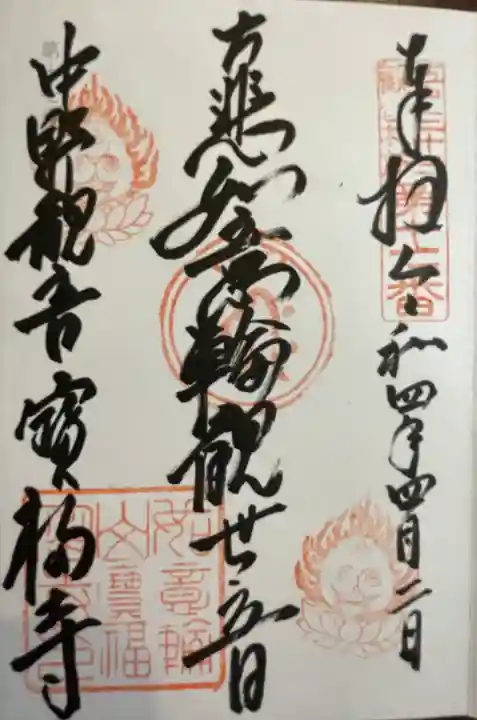 奉拝 令和四年四月二日
大悲如意輪観世音
中野観音 寳福寺
如意輪
山寶福